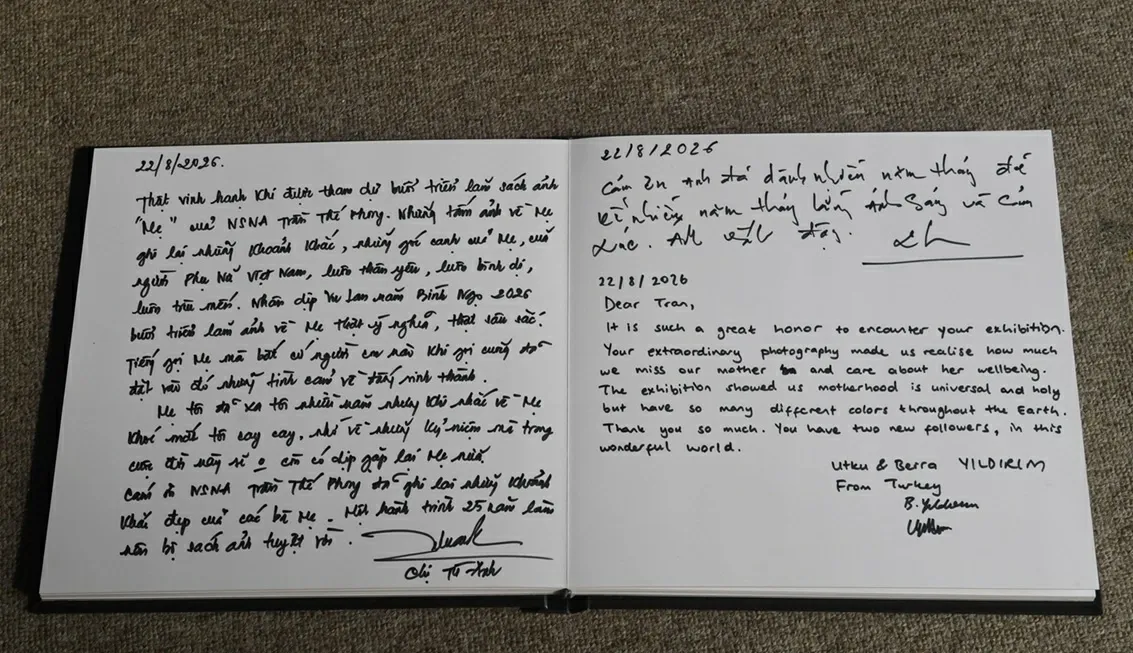 22/8/2026.
Thật vinh hạnh khi được tham dự buổi triển lãm sách ảnh
"Mẹ" của NSNA Trần Thế Phong. Những tấm ảnh về Mẹ
ghi lại những khoảnh khắc, những góc cạnh của Mẹ, của
người Phụ Nữ Việt Nam, luôn thân yêu, luôn bình dị,
luôn trìu mến. Nhân dịp Vu Lan năm Bính Ngọ 2026
buổi triển lãm ảnh về Mẹ thật ý nghĩa, thật sâu sắc.
Tiếng gọi Mẹ mà bất cứ người con nào khi gọi cũng đã
đặt vào đó những tình cảm về đấng sinh thành.
Mẹ tôi đã xa tôi nhiều năm nhưng khi nhắc về Mẹ
khoé mắt tôi cay cay, nhớ về những kỷ niệm mà trong
cuộc đời này sẽ o còn có dịp gặp lại Mẹ nữa.
Cám ơn NSNA Trần Thế Phong đã ghi lại những khoảnh
khắc đẹp của các bà Mẹ. Một hành trình 25 năm làm
nên bộ sách ảnh tuyệt vời.
Chị Tú Anh
22/8/2026
Cám ơn Anh đã dành nhiều năm tháng để
năm tháng bằng Ánh Sáng và Cảm
Xúc.
22/8/2026
Dear Tran,
It is such a great honor to encounter your exhibition.
Your extraordinary photography made us realise how much
we miss our mother and care about her wellbeing.
The exhibition showed us motherhood is universal and holy
but have so many different colors throughout the Earth.
Thank you so much. You have two new followers, in this
wonderful world.
Utku & Berra YILDIRIM
From Turkey